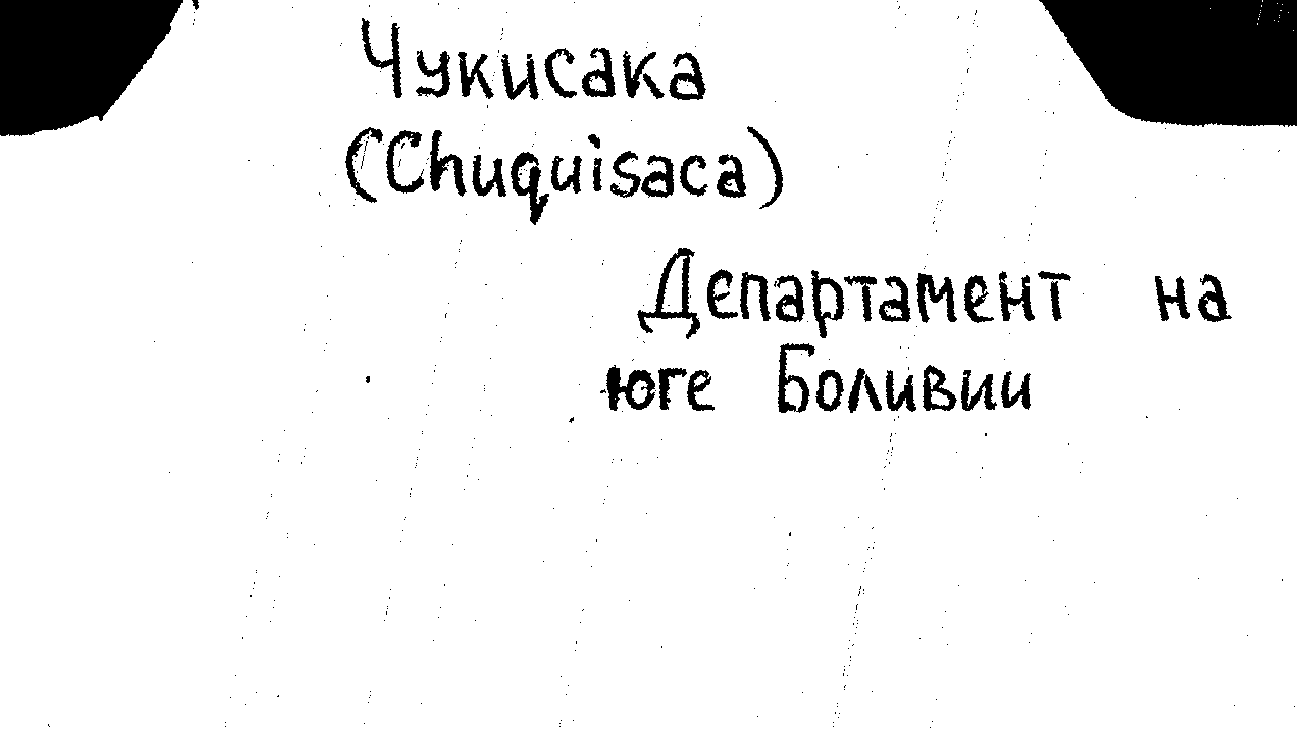 Чукисака
(Chuquisaca)
Департамент на
юге Боливии